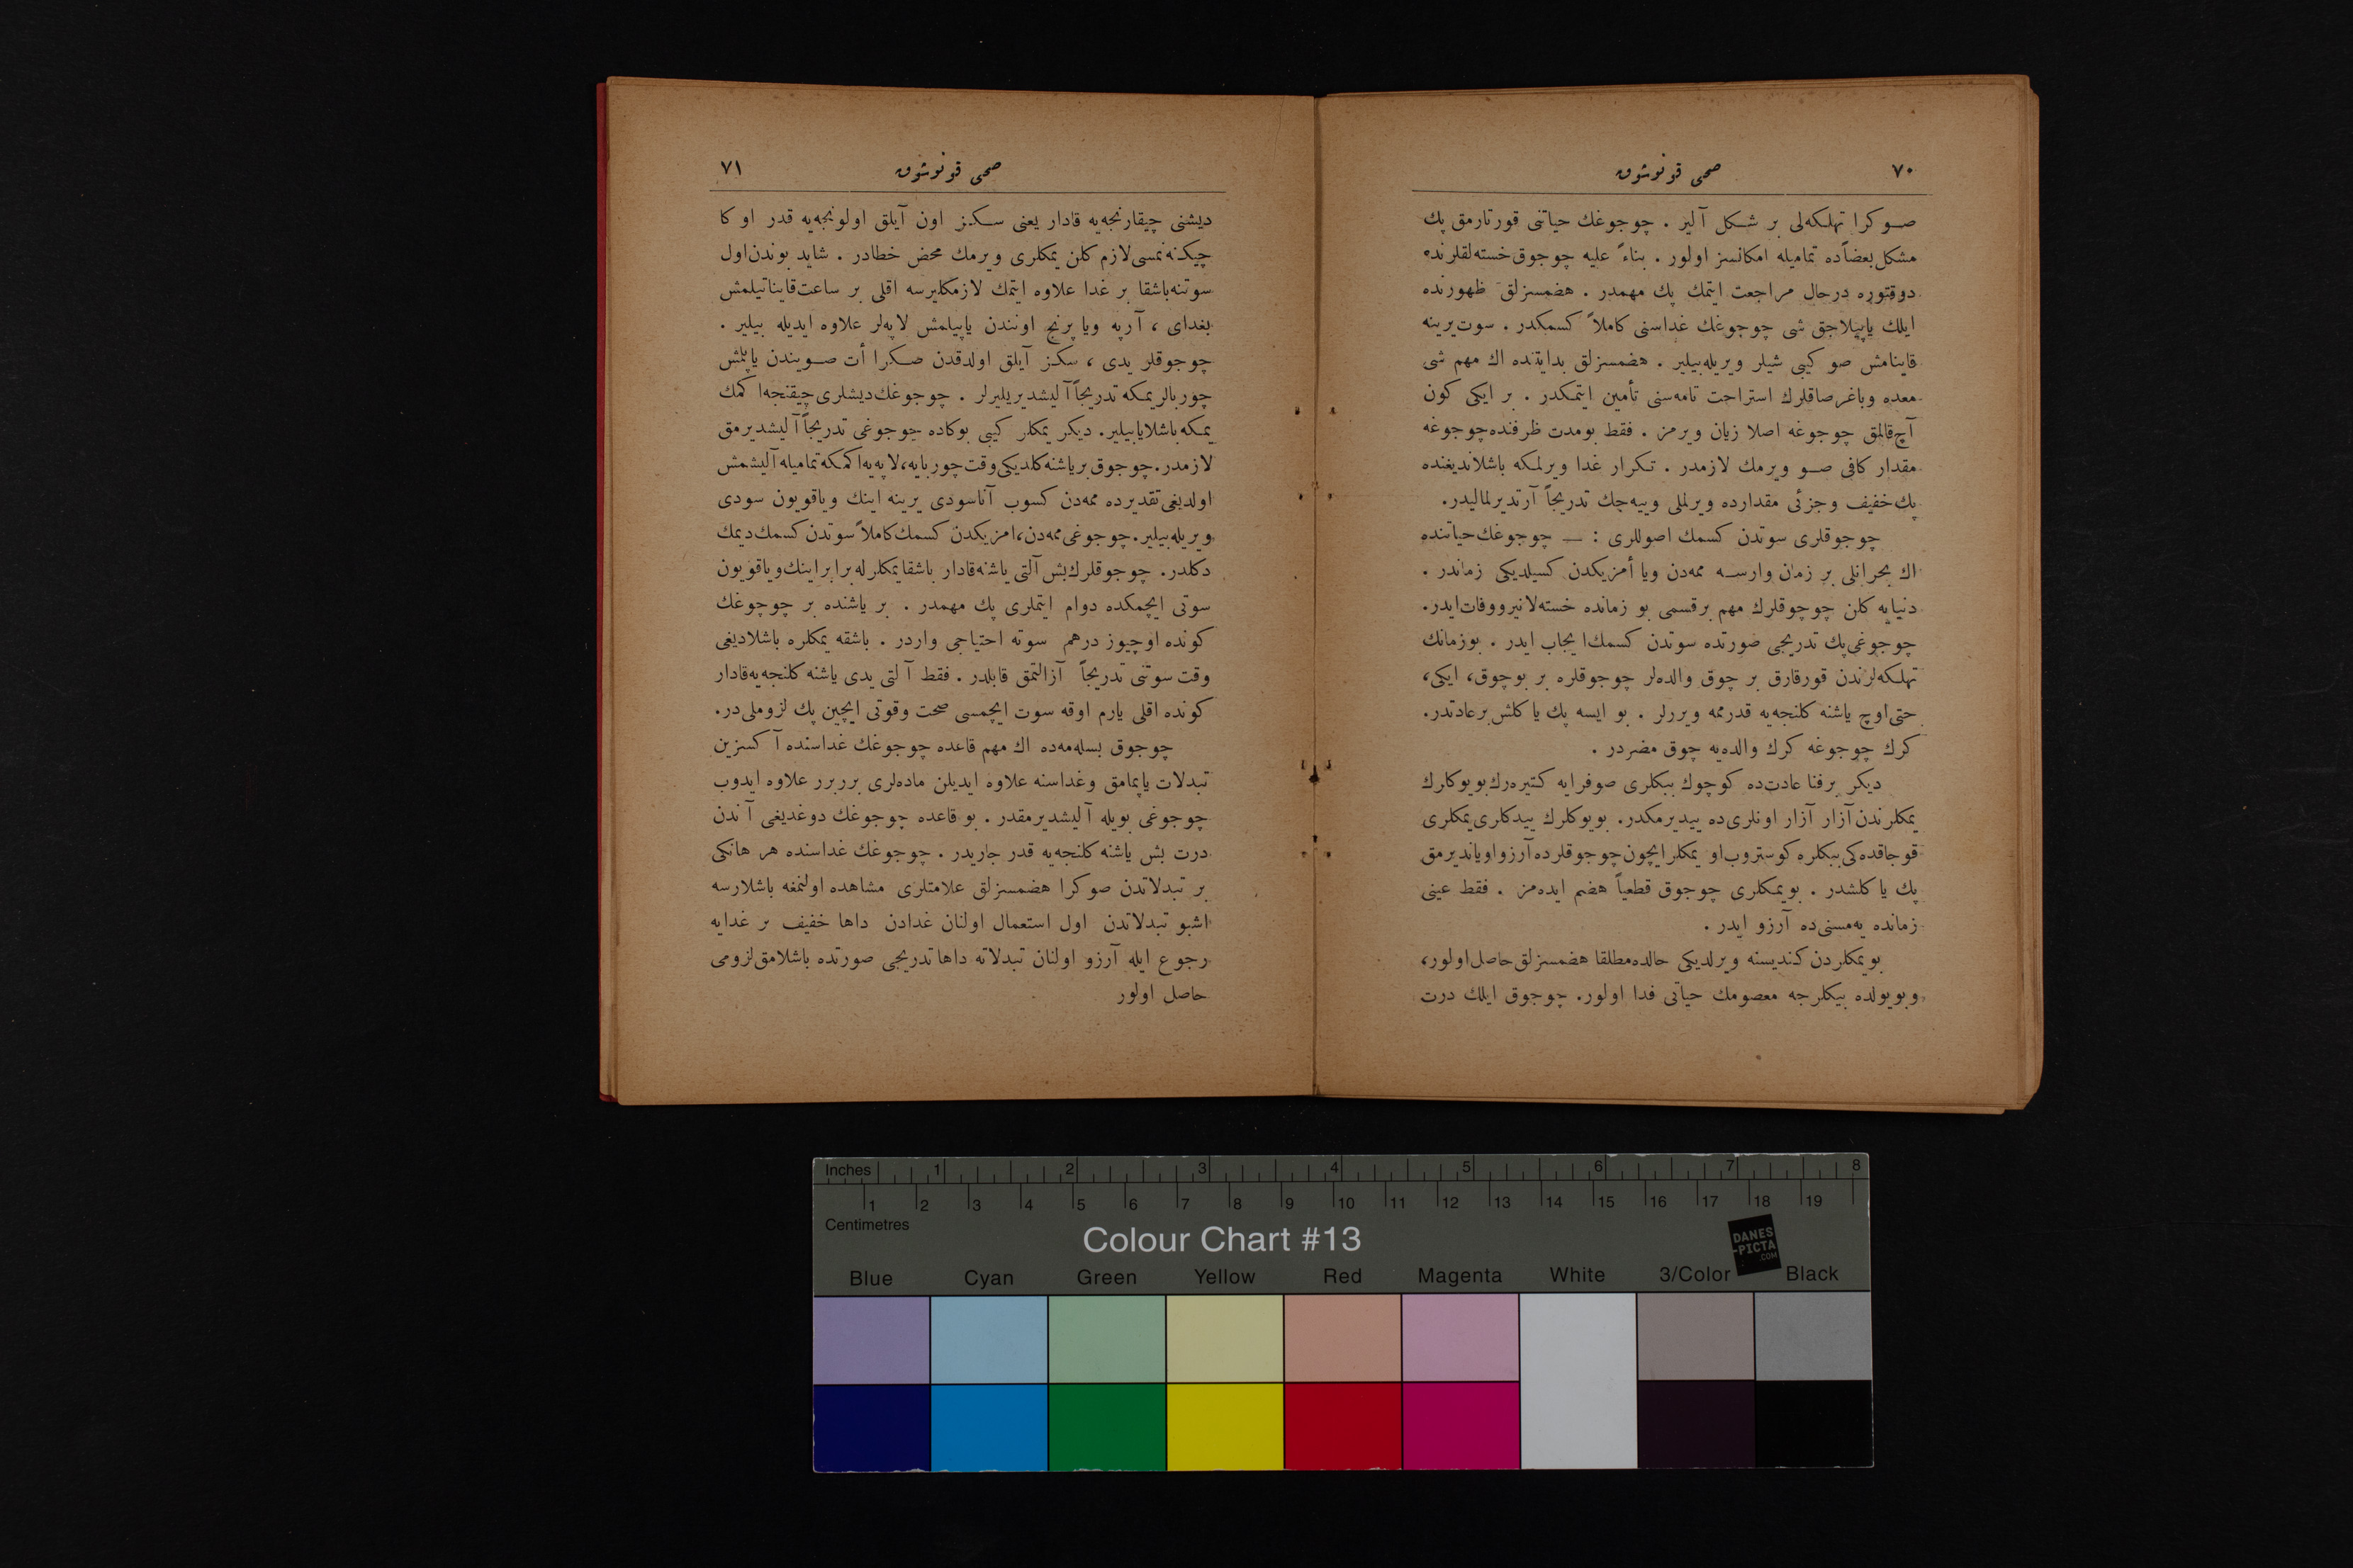 ٧٠
صحی قونوشوق
صوكرا تهلكه‌لی بر شكل آلیر . چوجوغك حیاتنی قورتارمق پك
مشكل بعضاً ده تمامیله امكانسز اولور . بناءً علیه چوجوق خسته‌لقلرنده
دوقتوره درحال مراجعت ایتمك پك مهمدر . هضمسزلق ظهورنده
ایلك یاپیلاجق شی چوجوغك غداسنی كاملاً كسمكدر . سوت یرینه
قاینامش صو كیبی شیلر ویریله‌بیلیر . هضمسزلق بدایتنده اك مهم شی
معده وباغرصاقلرك استراحت تامه‌سنی تأمین ایتمكدر . بر ایكی كون
آچ قالمق چوجوغه اصلا زیان ویرمز . فقط بومدت ظرفنده چوجوغه
مقدار كافی صو ویرمك لازمدر . تكرار غدا ویرلمكه باشلاندیغنده
پك خفیف وجزئی مقدارده ویرلملی وییه‌جك تدریجاً آرتدیرلمالیدر.
چوجوقلری سوتدن كسمك اصوللری : — چوجوغك حیاتنده
اك بحرانلی بر زمان وارسه ممه‌دن ویا أمزیكدن كسیلدیكی زماندر .
دنیایه كلن چوجوقلرك مهم برقسمی بو زمانده خسته‌لانیر ووفات ایدر.
چوجوغی پك تدریجی صورتده سوتدن كسمك ایجاب ایدر . بوزمانك
تهلكه‌لرندن قورقارق بر چوق والده‌لر چوجوقلره بر بوچوق، ایكی،
حتی اوچ یاشنه كلنجه‌یه قدر ممه ویررلر . بو ایسه پك یاكلش برعادتدر.
كرك چوجوغه كرك والده‌یه چوق مضردر .
دیكر برفنا عادت‌ده كوچوك ببكلری صوفرایه كتیره‌رك بویوكلرك
یمكلرندن آزار آزار اونلری‌ده ییدیرمكدر. بویوكلرك ییدكلری یمكلری
قوجاقده‌كی ببكلره كوستروب او یمكلر ایچون چوجوقلرده آرزو اویاندیرمق
پك یاكلشدر . بویمكلری چوجوق قطعیاً هضم ایده‌مز . فقط عینی
زمانده یه‌مسنی‌ده آرزو ایدر .
بویمكلردن كندیسنه ویرلدیكی حالده مطلقا هضمسزلق حاصل اولور،
وبویولده بیكلرجه معصومك حیاتی فدا اولور. چوجوق ایلك درت
صحی قونوشوق
٧١
دیشنی چیقارنجه‌یه قادار یعنی سكز اون آیلق اولونجه‌یه قدر اوكا
چیكنه‌نمسی لازم كلن یمكلری ویرمك محض خطادر . شاید بوندن اول
سوتنه باشقا بر غدا علاوه ایتمك لازمكلیرسه اقلی بر ساعت قایناتیلمش
بغدای ، آرپه ویا پرنج اونندن یاپیلمش لاپه‌لر علاوه ایدیله بیلیر .
چوجوقلر یدی ، سكز آیلق اولدقدن صكرا أت صویندن یاپلمش
چوربالر یمكه تدریجاً آلیشدیریلیرلر . چوجوغك دیشلری چیقنجه اكمك
یمكه باشلایابیلیر. دیكر یمكلر كیبی بوكاده چوجوغی تدریجاً آلیشدیرمق
لازمدر. چوجوق بریاشنه كلدیكی وقت چوربایه، لاپه‌یه اكمكه تمامیله آلیشمش
اولدیغی تقدیرده ممه‌دن كسوب آناسودی یرینه اینك ویاقویون سودی
ویریله‌بیلیر. چوجوغی ممه‌دن، امزیكدن كسمك كاملاً سوتدن كسمك دیمك
دكلدر. چوجوقلرك بش آلتی یاشنه قادار باشقا یمكلرله برابر اینك ویاقویون
سوتی ایچمكده دوام ایتملری پك مهمدر . بر یاشنده بر چوجوغك
كونده اوچیوز درهم سوته احتیاجی واردر . باشقه یمكلره باشلادیغی
وقت سوتنی تدریجاً آزالتمق قابلدر . فقط آلتی یدی یاشنه كلنجه‌یه قادار
كونده اقلی یارم اوقه سوت ایچمسی صحت وقوتی ایچین پك لزوملی‌در.
چوجوق بسله‌مه‌ده اك مهم قاعده چوجوغك غداسنده آكسزین
تبدلات یاپمامق وغداسنه علاوه ایدیلن ماده‌لری برربرر علاوه ایدوب
چوجوغی بویله آلیشدیرمقدر . بو قاعده چوجوغك دوغدیغی آندن
درت بش یاشنه كلنجه‌یه قدر جاریدر . چوجوغك غداسنده هر هانكی
بر تبدلاتدن صوكرا هضمسزلق علامتلری مشاهده اولنمغه باشلارسه
اشبو تبدلاتدن اول استعمال اولنان غدادن داها خفیف بر غدایه
رجوع ایله آرزو اولنان تبدلاته داها تدریجی صورتده باشلامق لزومی
حاصل اولور
Inches 1 2 3 4 5 6 7 8
1 2 3 4 5 6 7 8 9 10 11 12 13 14 15 16 17 18 19
Centimetres
Colour Chart #13
DANES
-PICTA
.COM
Blue Cyan Green Yellow Red Magenta White 3/Color Black